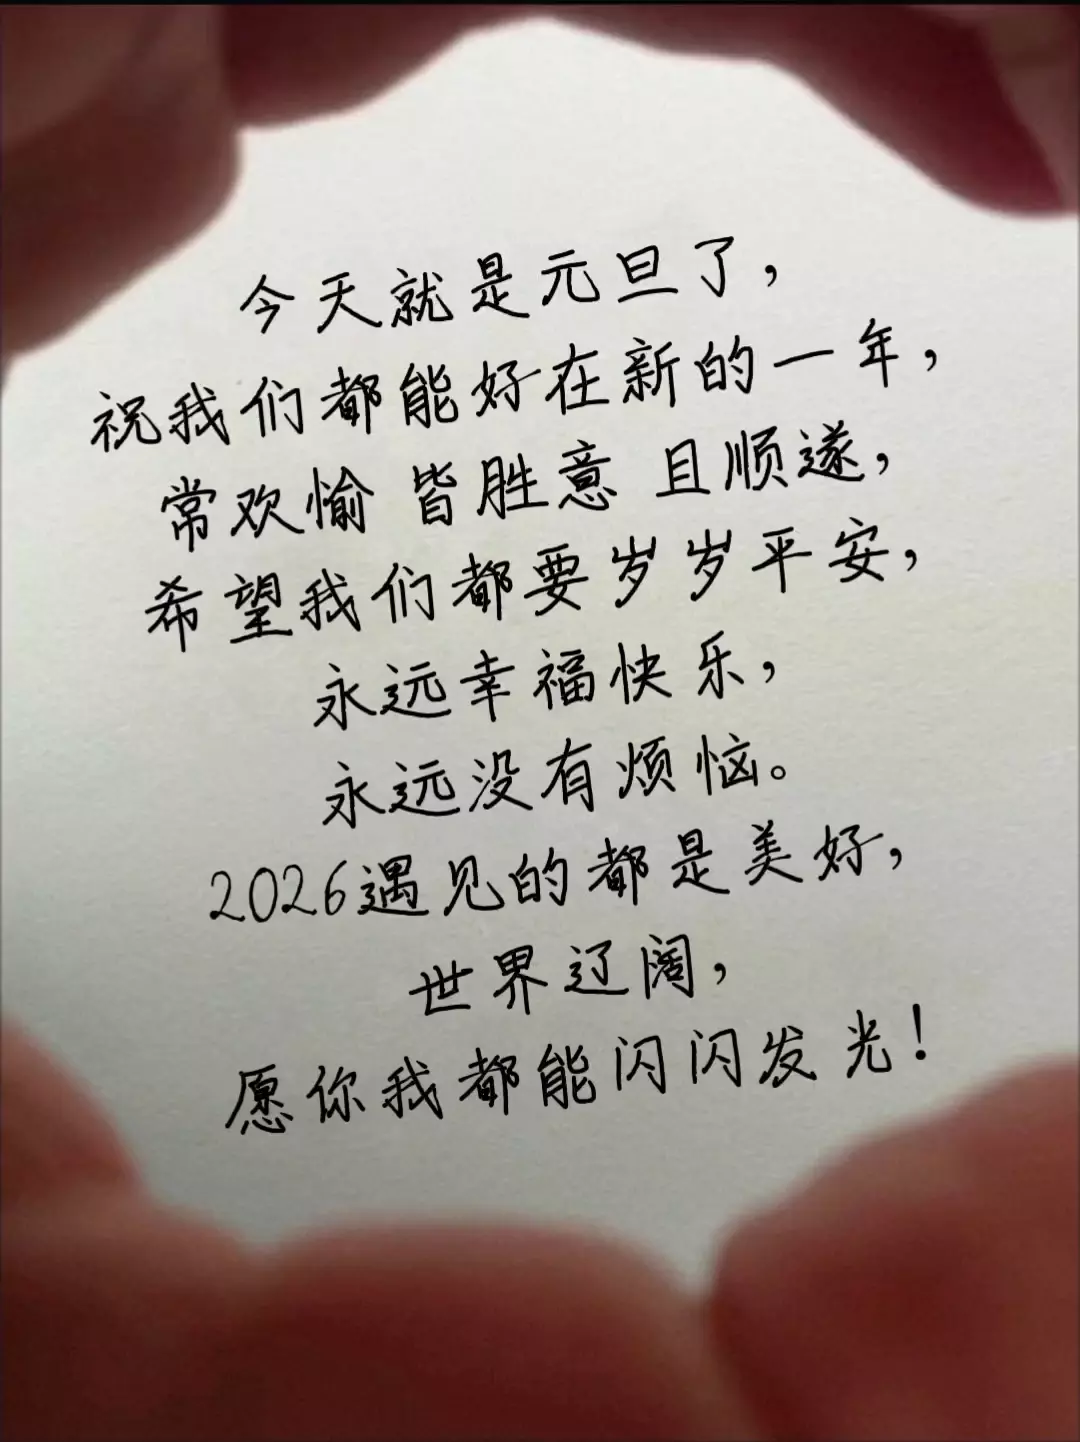 今天就是元旦了，
祝我们都能好在新的一年，
常欢愉 皆胜意 且顺遂，
希望我们都要岁岁平安，
永远幸福快乐，
永远没有烦恼。
2026遇见的都是美好，
世界辽阔，
愿你我都能闪闪发光！